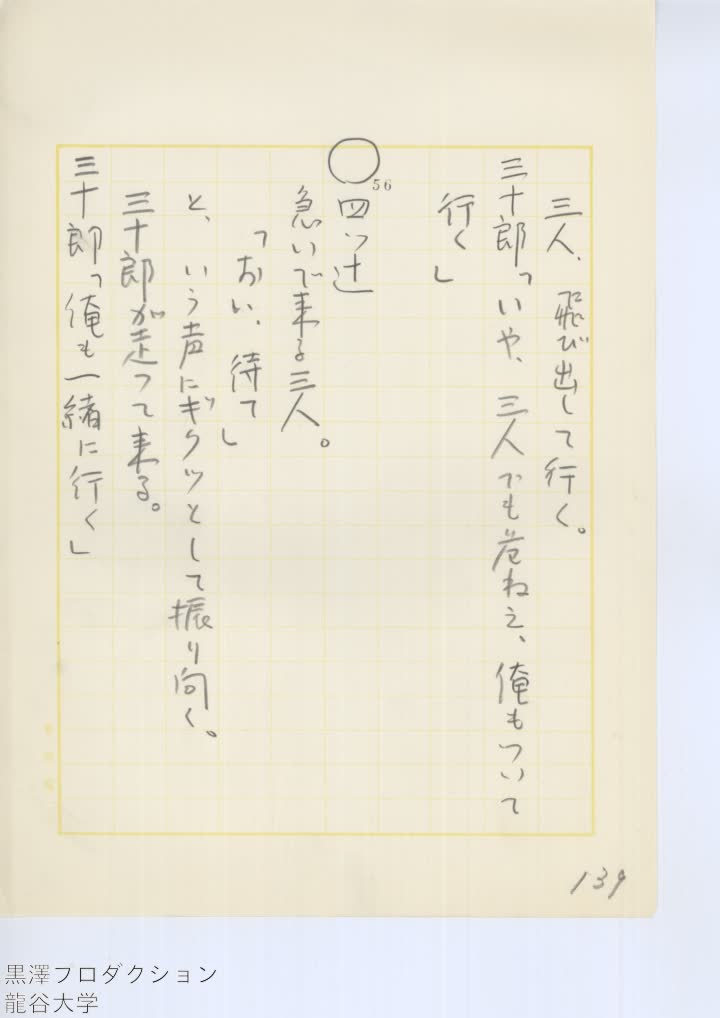 三人、飛び出して行く。
三十郎「いや、三人でも危ねえ、俺もついて
行く」
○56
四つ辻
急いで来る三人。
「おい、待て」
と、いう声にギクッとして振り向く。
三十郎が走って来る。
三十郎「俺も一緒に行く」
139
黒澤プロダクション
龍谷大学